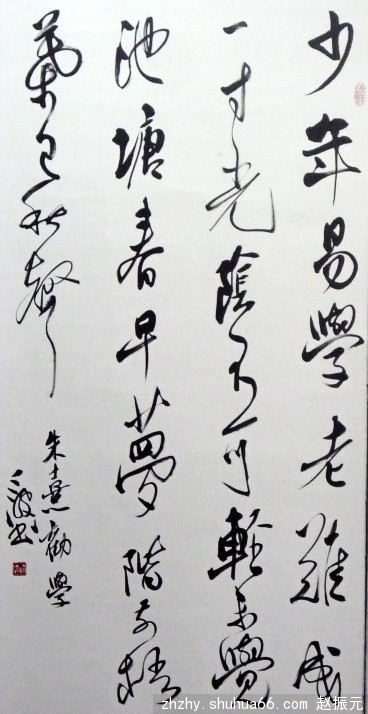 少年易學老難成
一寸光陰不可輕未覺
池塘春早夢階前梧
葉已秋聲
朱熹勸學
zhzhy.shuhua66.com 赵振元